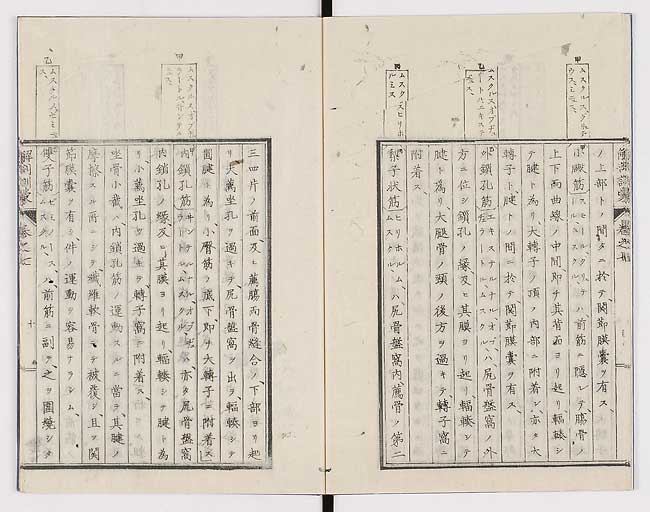 甲
ムスクルス、グルテ
ウス、ミニミュス、
乙
ムスクルス、オブチュ
ラートル、エキステ
丙
ムスクルス、ピリホ
ルミス
ノ上部トノ間タニ於テ關節膜囊ヲ有ス、
小臀筋 ハ前筋ニ隱レテ腸骨ノ
上下两曲線ノ中間即チ其背面ヨリ起リ輻輳シ
テ腱ト為リ大轉子ノ頂ノ内部ニ附着シ亦タ大
轉子ト腱トノ間ニ於テ關節膜囊ヲ有ス、
外鎖孔筋 エキステルナル、オブチュラートル、ムスクル、ハ尻骨盤窩ノ外
方ニ位シ鎖孔ノ緣及ヒ其膜ヨリ起リ輻輳シテ
腱ト為リ大腿骨ノ頸ノ後方ヲ過キテ轉子窩ニ
附着ス、
梨子狀筋 ピリホルム、ムスクル、ハ尻骨盤窩内薦骨ノ第二
甲
ムスクルス、オブチュ
ラートル、インテル
乙
ムスクルス、ゼミニ
ス、
三四片ノ前面及ヒ薦腸两骨縫合ノ下部ヨリ起
リ大薦坐孔ヲ過キテ尻骨盤窩ヲ出テ輻輳シテ
圓腱ト為リ小臀筋ノ底下即チ大轉子ニ附着ス、
内鎖孔筋 インテルナル、オブチュラートル、ムスクル、亦タ尻骨盤窩
内鎖孔ノ緣及ヒ其膜ヨリ起リ輻輳シテ腱ト為
リ小薦坐孔ヲ過キテ轉子窩ニ附着ス、
坐骨小截ハ内鎖孔筋ノ運動スルニ當テ其腱ノ
摩擦スル所ニシテ纎維軟骨ニテ被覆シ且ツ關
節膜囊ヲ有シ件ノ運動ヲ容易ナラシム、
雙子筋 ゼミニ、ムスクルス、ハ前筋ニ副テ之ヲ圍燒シタ
解剖訓蒙 卷之七 十